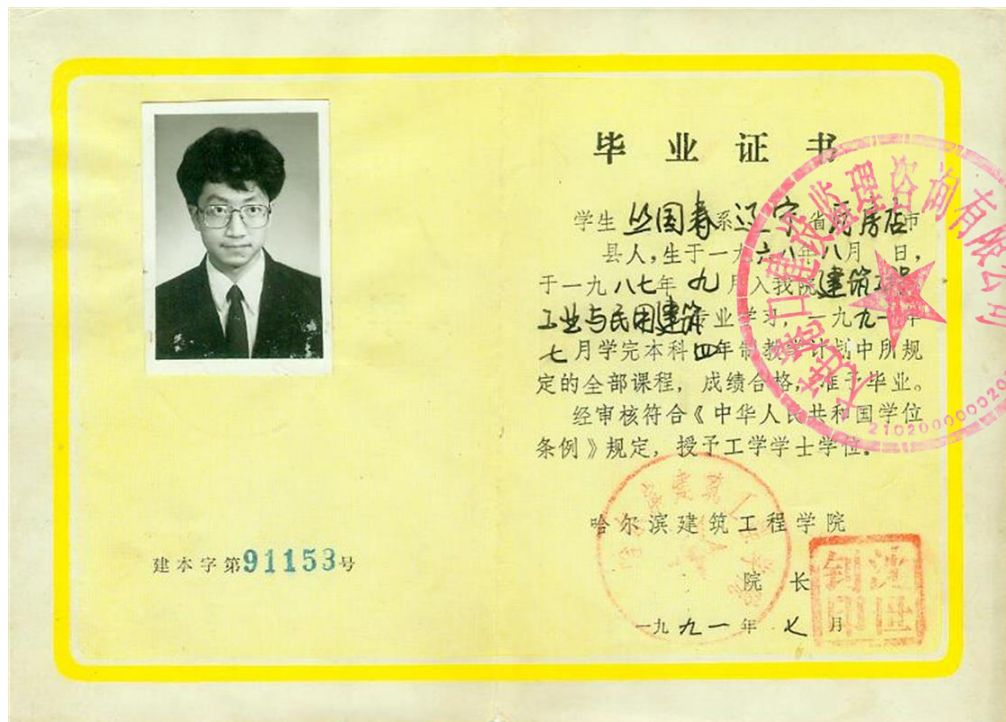 毕业证书
学生丛国春系辽宁省瓦房店市
县人，生于一九六八年八月 日，
于一九八七年九月入我院建筑工程
工业与民用建筑专业学习，一九九一年
七月学完本科四年制教学计划中所规
定的全部课程，成绩合格，准予毕业。
经审核符合《中华人民共和国学位
条例》规定，授予工学学士学位。
哈尔滨建筑工程学院
院长
沈世钊印
一九九一年七月
建本字第91153号